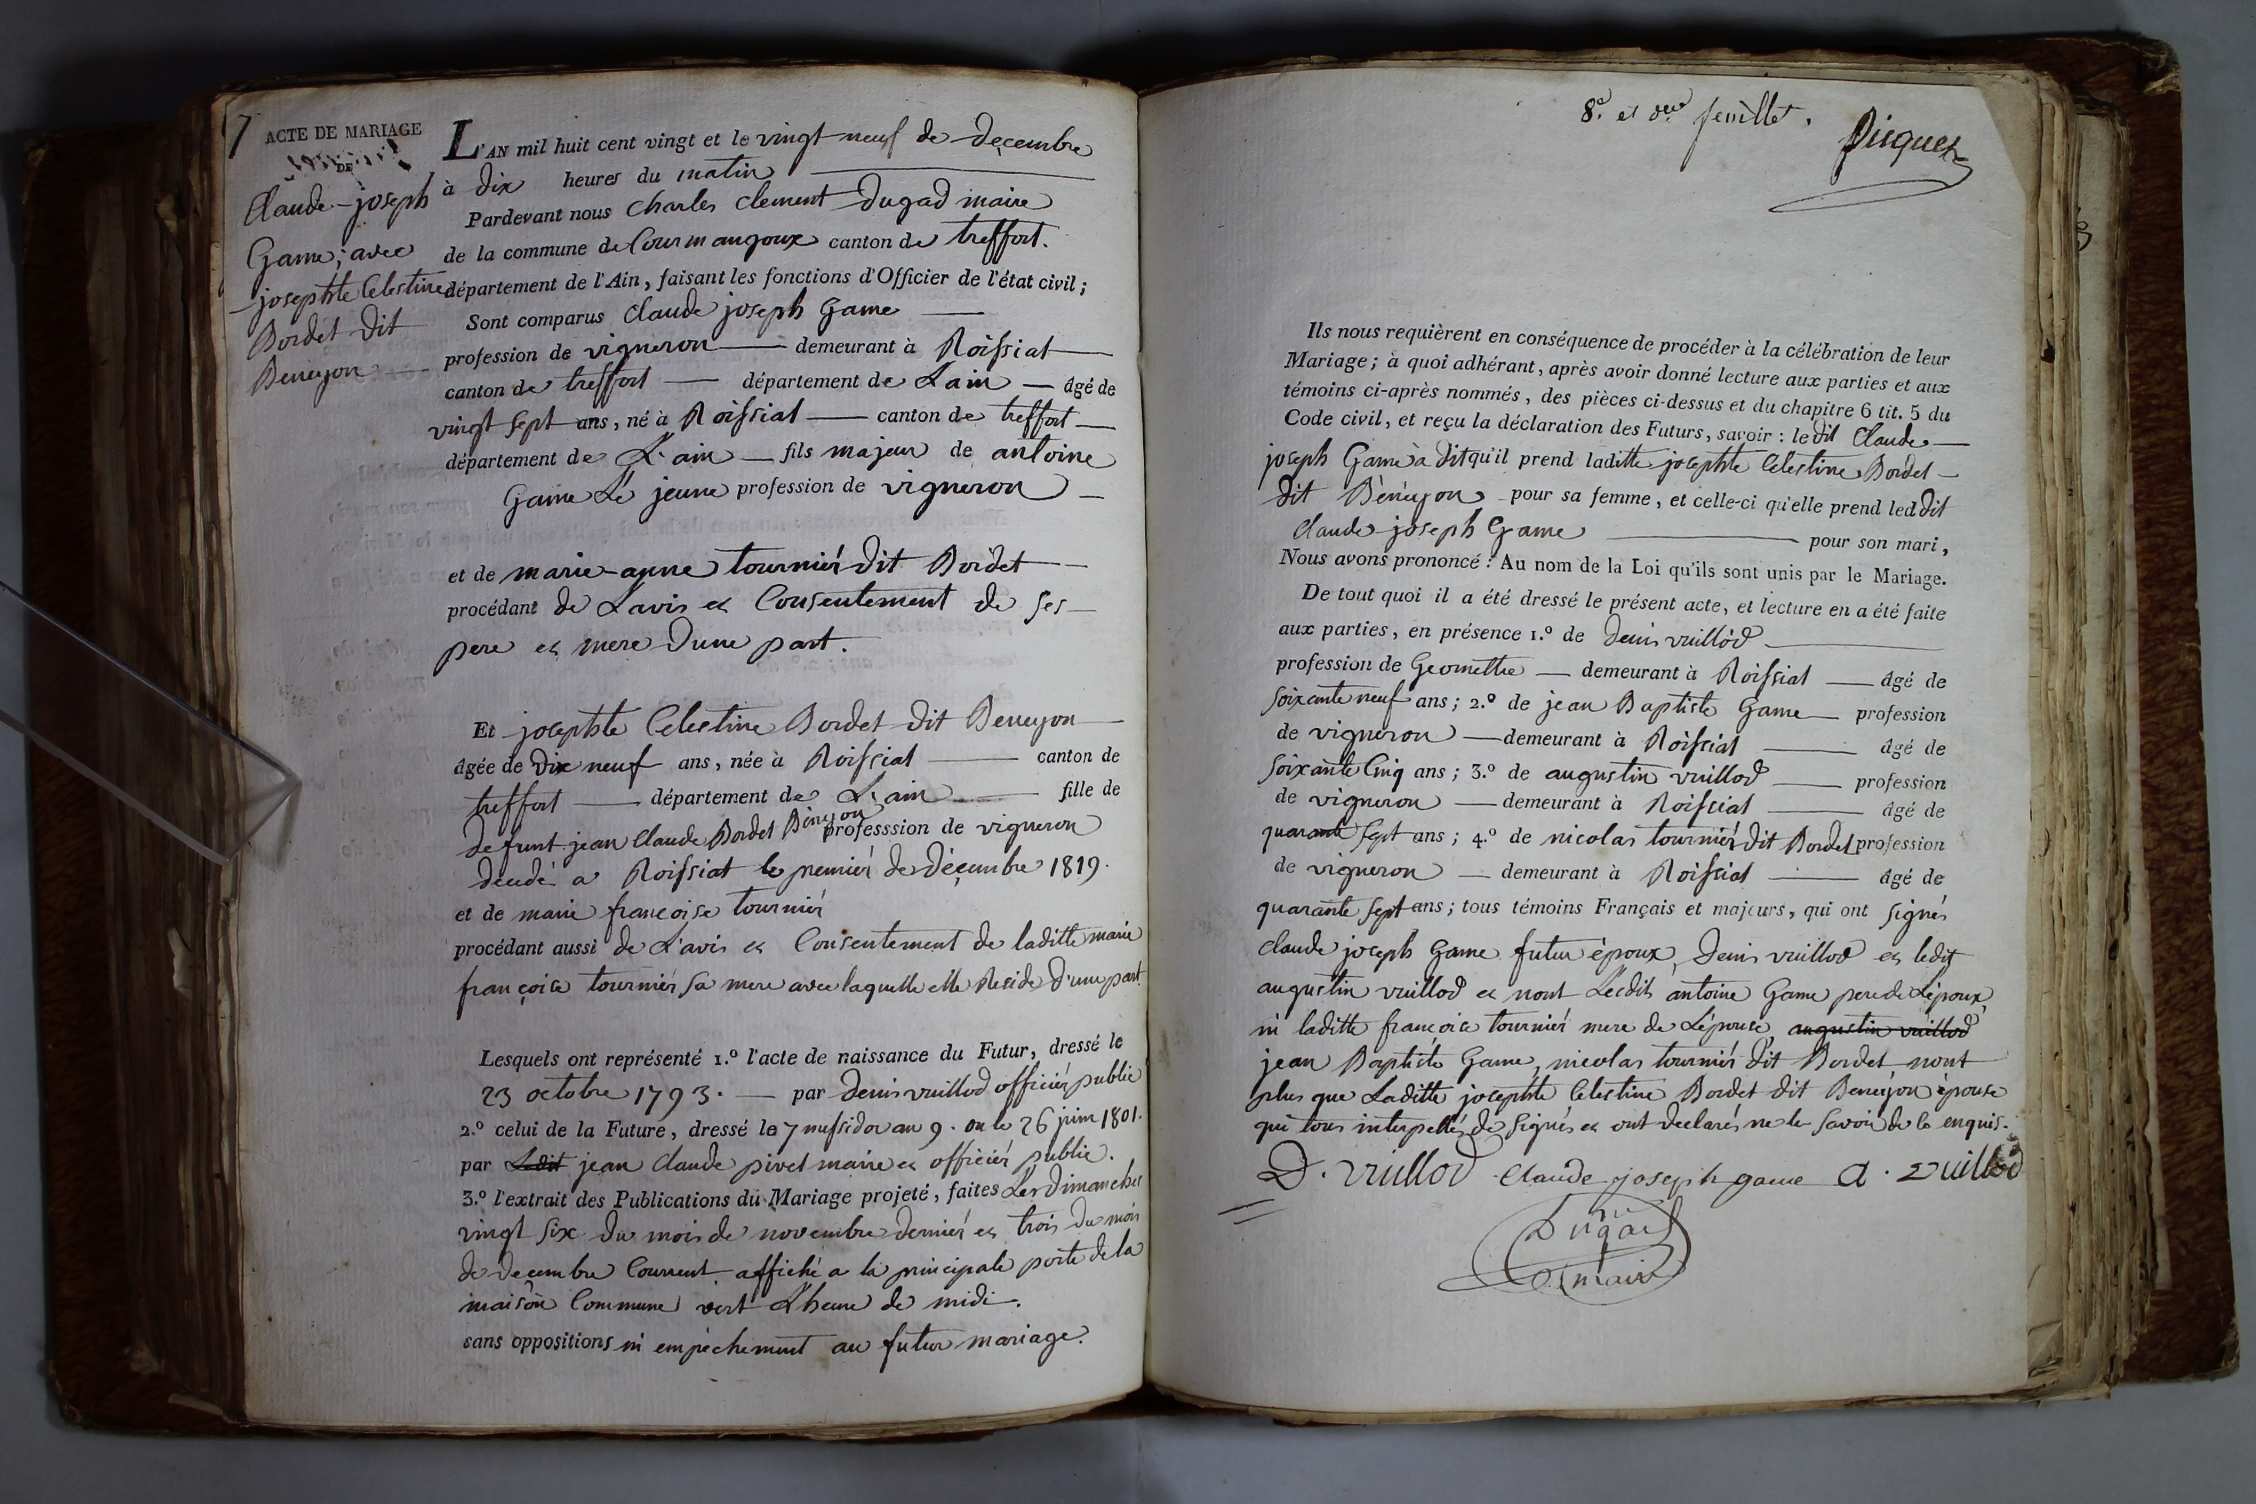 7 ACTE DE MARIAGE
DE
Claude-joseph
Game; avec
josephte Celestine
Bordet dit
Beneyon
L'AN mil huit cent vingt et le vingt neuf de deçembre
à dix heures du matin
Pardevant nous Charles Clement Dugad maire
de la commune de Courmangoux canton de treffort.
département de l'Ain, faisant les fonctions d'Officier de l'état civil;
Sont comparus Claude joseph Game
profession de vigneron demeurant à Roissiat
canton de treffort département de Lain âgé de
vingt sept ans, né à Roissiat canton de treffort
département de L'ain fils majeur de antoine
Game Le jeune profession de vigneron
et de marie-anne tourniér dit Bordet
procédant de Lavis et Consentement de ses
pere et mere d'une part.
Et josephte Celestine Bordet dit Beneyon
âgée de dix neuf ans, née à Roissiat canton de
treffort département de L'ain fille de
defunt jean Claude Bordet Beneyon professsion de vigneron
decedé a Roissiat le premiér de deçembre 1819.
et de marie françoise tourniér
procédant aussi de L'avis et Consentement de laditte marie
françoise tourniér sa mere avec laquelle elle Reside d'une part
Lesquels ont représenté 1.º l'acte de naissance du Futur, dressé le
23 octobre 1793. par denis vuillod officiér public
2.º celui de la Future, dressé le 7 messidor an 9. ou le 26 juin 1801.
par Ledit jean Claude pivet maire et officiér public.
3.º l'extrait des Publications du Mariage projeté, faites Les Dimanches
vingt six du mois de novembre derniér et trois du mois
de decembre Courrent affiché a la principale porte de la
maison Commune vert L'heure de midi.
sans oppositions ni empéchement au futur mariage.
8.e et der feuillet.
Picquet
Ils nous requièrent en conséquence de procéder à la célébration de leur
Mariage; à quoi adhérant, après avoir donné lecture aux parties et aux
témoins ci-après nommés, des pièces ci-dessus et du chapitre 6 tit. 5 du
Code civil, et reçu la déclaration des Futurs, savoir: le dit Claude
joseph Game à dit qu'il prend laditte josephte Celestine Bordet
dit Beneyon pour sa femme, et celle-ci qu'elle prend led dit
Claude joseph Game pour son mari,
Nous avons prononcé: Au nom de la Loi qu'ils sont unis par le Mariage.
De tout quoi il a été dressé le présent acte, et lecture en a été faite
aux parties, en présence 1.º de denis vuillod
profession de Geomettre demeurant à Roissiat âgé de
soixante neuf ans; 2.º de jean Baptiste Game profession
de vigneron demeurant à Roissiat âgé de
soixante Cinq ans; 3.º de augustin vuillod profession
de vigneron demeurant à Roissiat âgé de
quarante sept ans; 4.º de nicolas tourniér dit Bordet profession
de vigneron demeurant à Roissiat âgé de
quarante sept ans; tous témoins Français et majeurs, qui ont signés
claude joseph Game futur époux, Denis vuillod et ledit
augustin vuillod et nont Lesdits antoine Game pere de L'époux,
ni laditte françoise tourniér mere de L'épouse augustin vuillod
jean Baptiste Game, nicolas tourniér dit Bordet, nont
plus que Laditte josephte Celestine Bordet dit Beneyon épouse
qui tous interpellés de signés et ont declarés ne le savoir de ce enquis.
D. vuillod claude joseph game A. vuillod
Dugad
maire